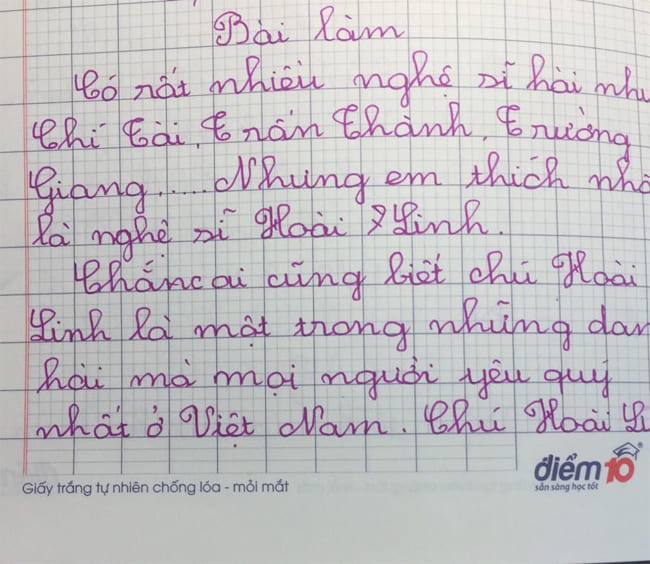 Bài làm
Có rất nhiều nghệ sĩ hài như
Chí Tài, Trấn Thành, Trường
Giang..... Nhưng em thích nhấ
là nghệ sĩ Hoài Linh.
Chắc ai cũng biết chú Hoài
Linh là một trong những dan
hài mà mọi người yêu quý
nhất ở Việt Nam. Chú Hoài Li
điểm 10
sẵn sàng học tốt
Giấy trắng tự nhiên chống lóa - mỏi mắt